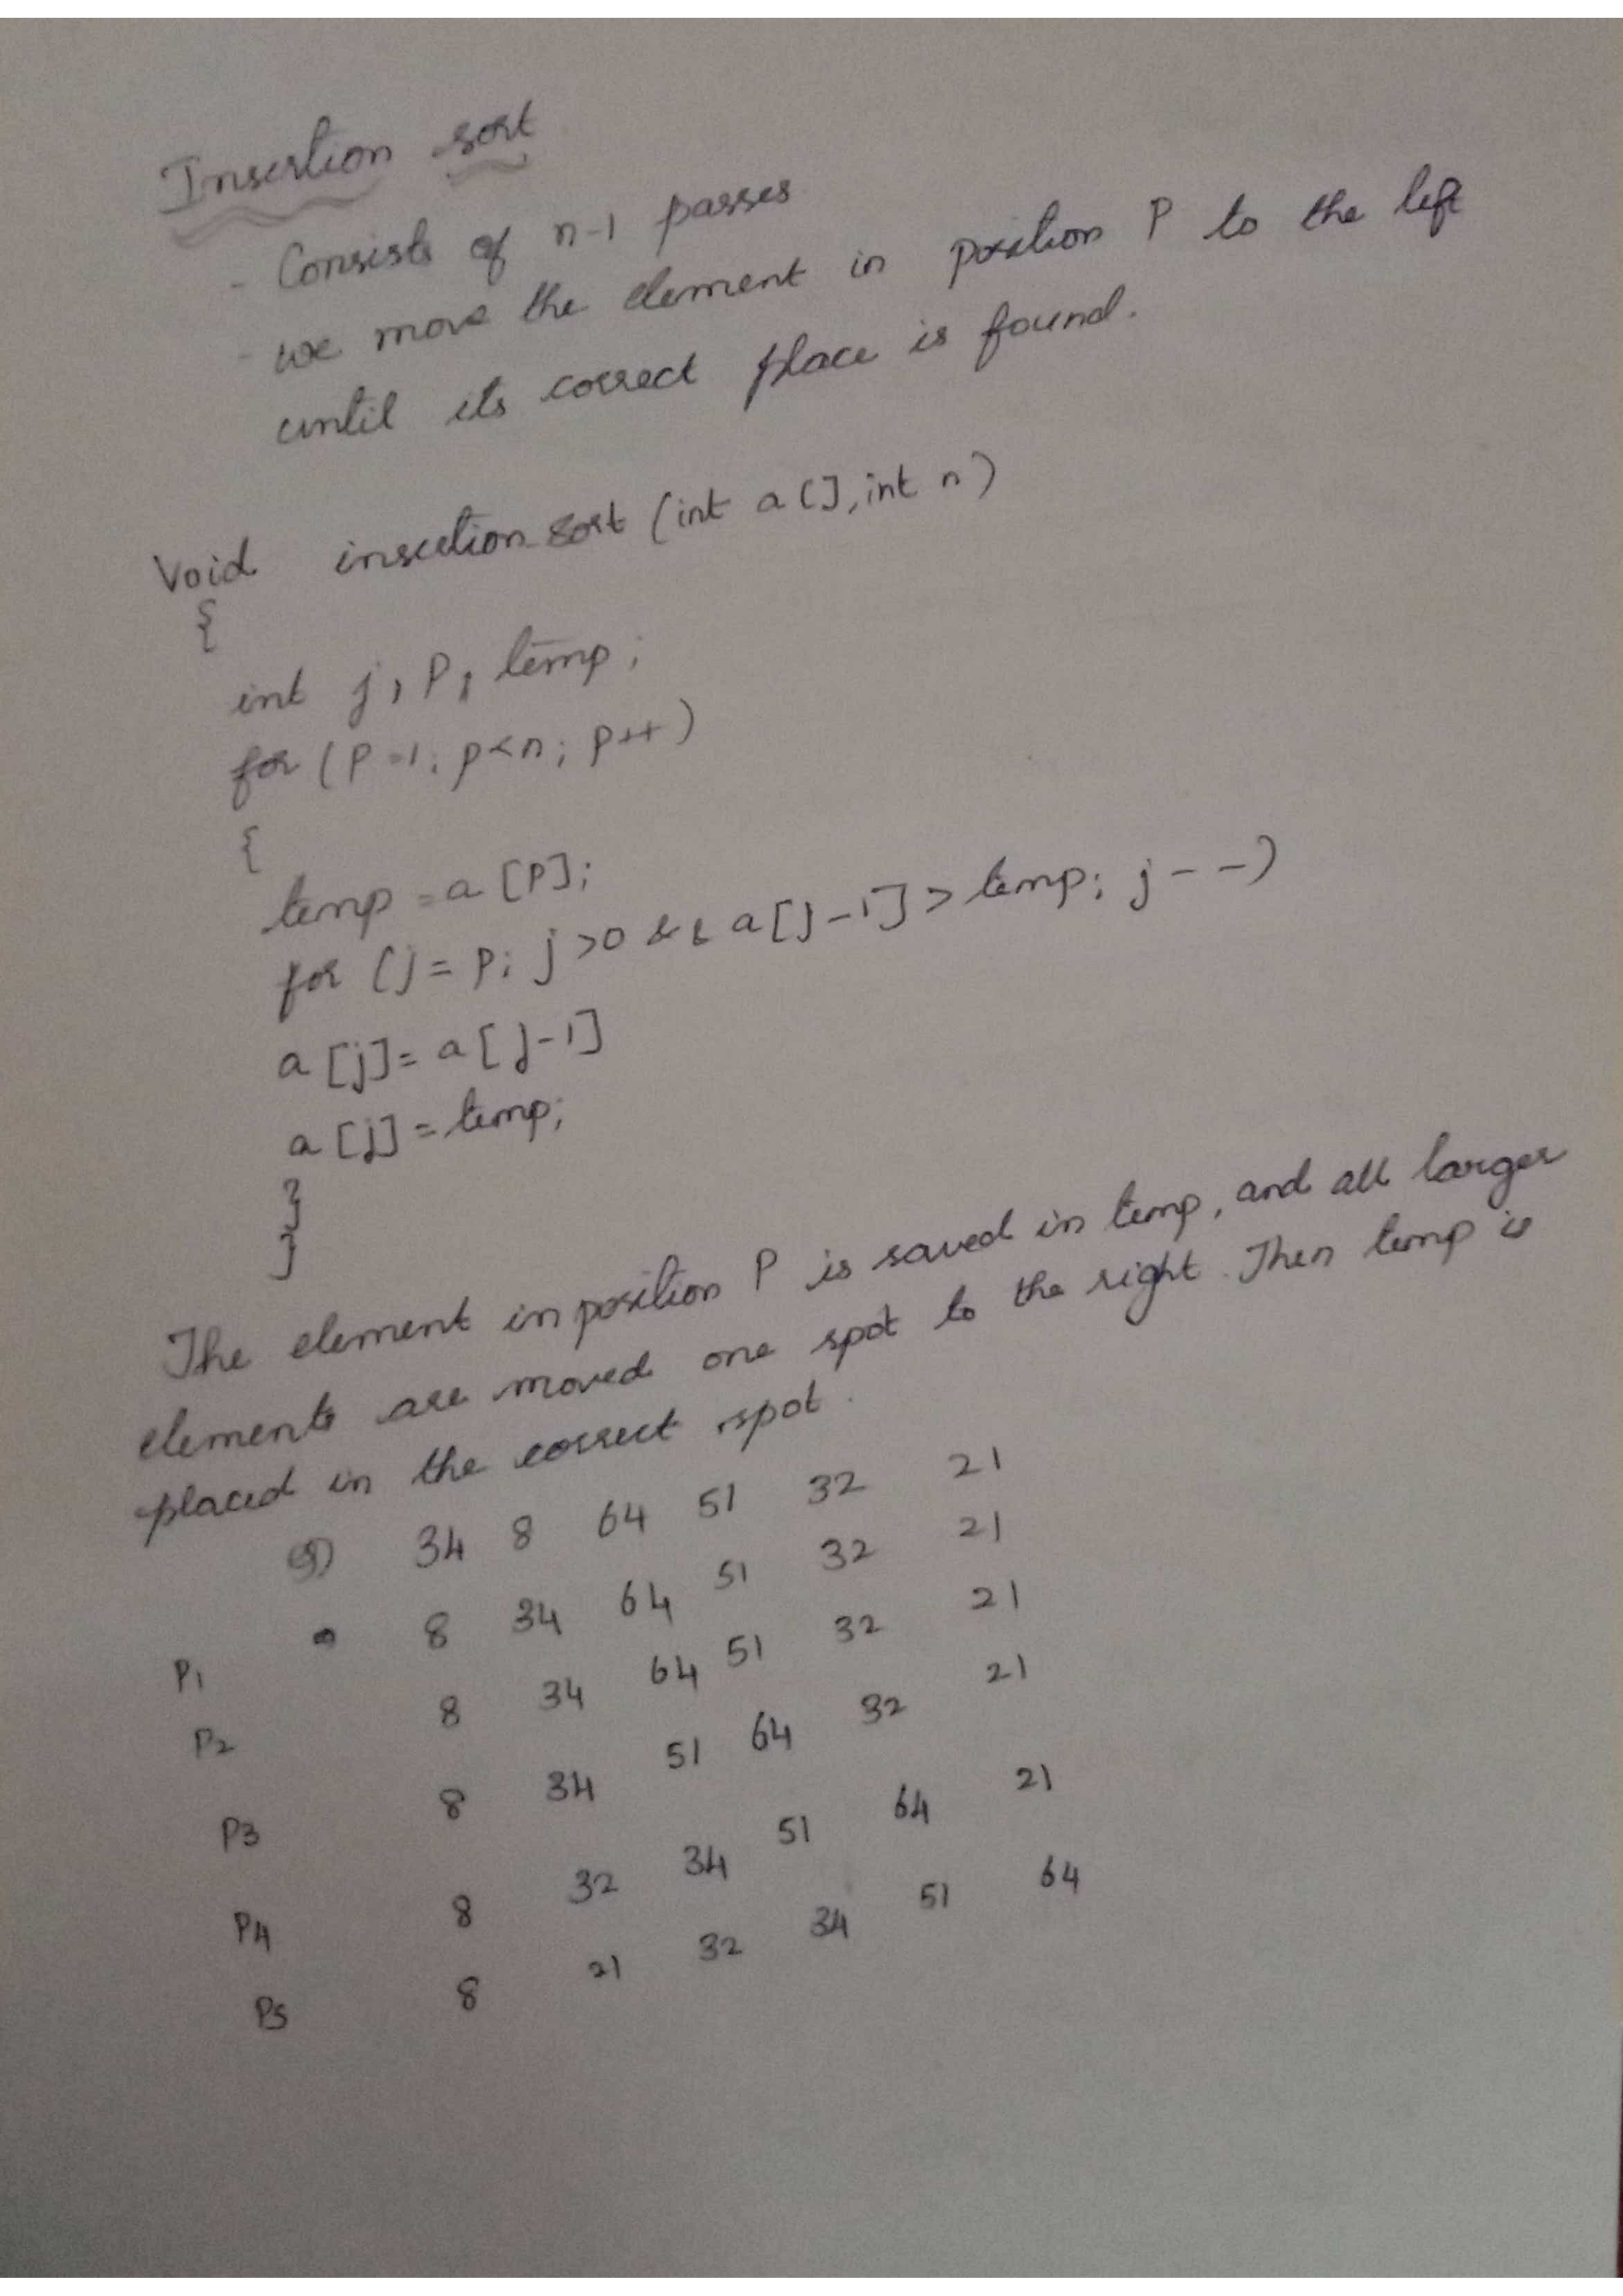 Insertion sort
- Consists of n-1 passes
- we move the element in position P to the left
until its correct place is found.
Void insertion-sort (int a[], int n)
{
int j, P, temp;
for (P=1; p<n; p++)
{
temp = a[P];
for (j = p; j>0 && a[j-1] > temp; j--)
a[j] = a[j-1]
a[j] = temp;
}
}
The element in position P is saved in temp, and all larger
elements are moved one spot to the right. Then temp is
placed in the correct spot.
34 8 64 51 32 21
P1 8 34 64 51 32 21
P2 8 34 64 51 32 21
P3 8 34 51 64 32 21
P4 8 32 34 51 64 21
P5 8 21 32 34 51 64